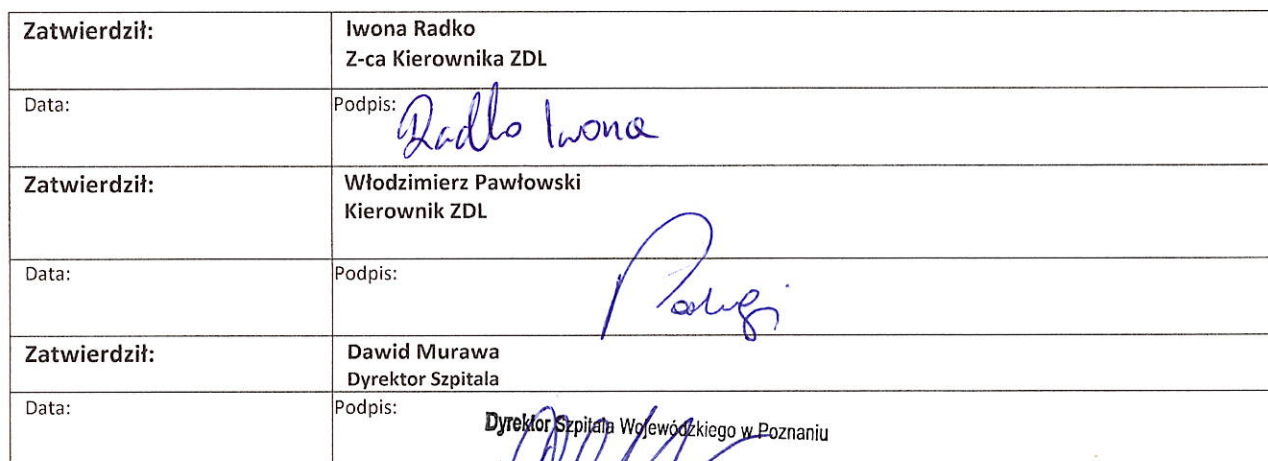 Zatwierdził: Iwona Radko
Z-ca Kierownika ZDL
Data: Podpis: Radko Iwona
Zatwierdził: Włodzimierz Pawłowski
Kierownik ZDL
Data: Podpis:
Zatwierdził: Dawid Murawa
Dyrektor Szpitala
Data: Podpis: Dyrektor Szpitala Wojewódzkiego w Poznaniu